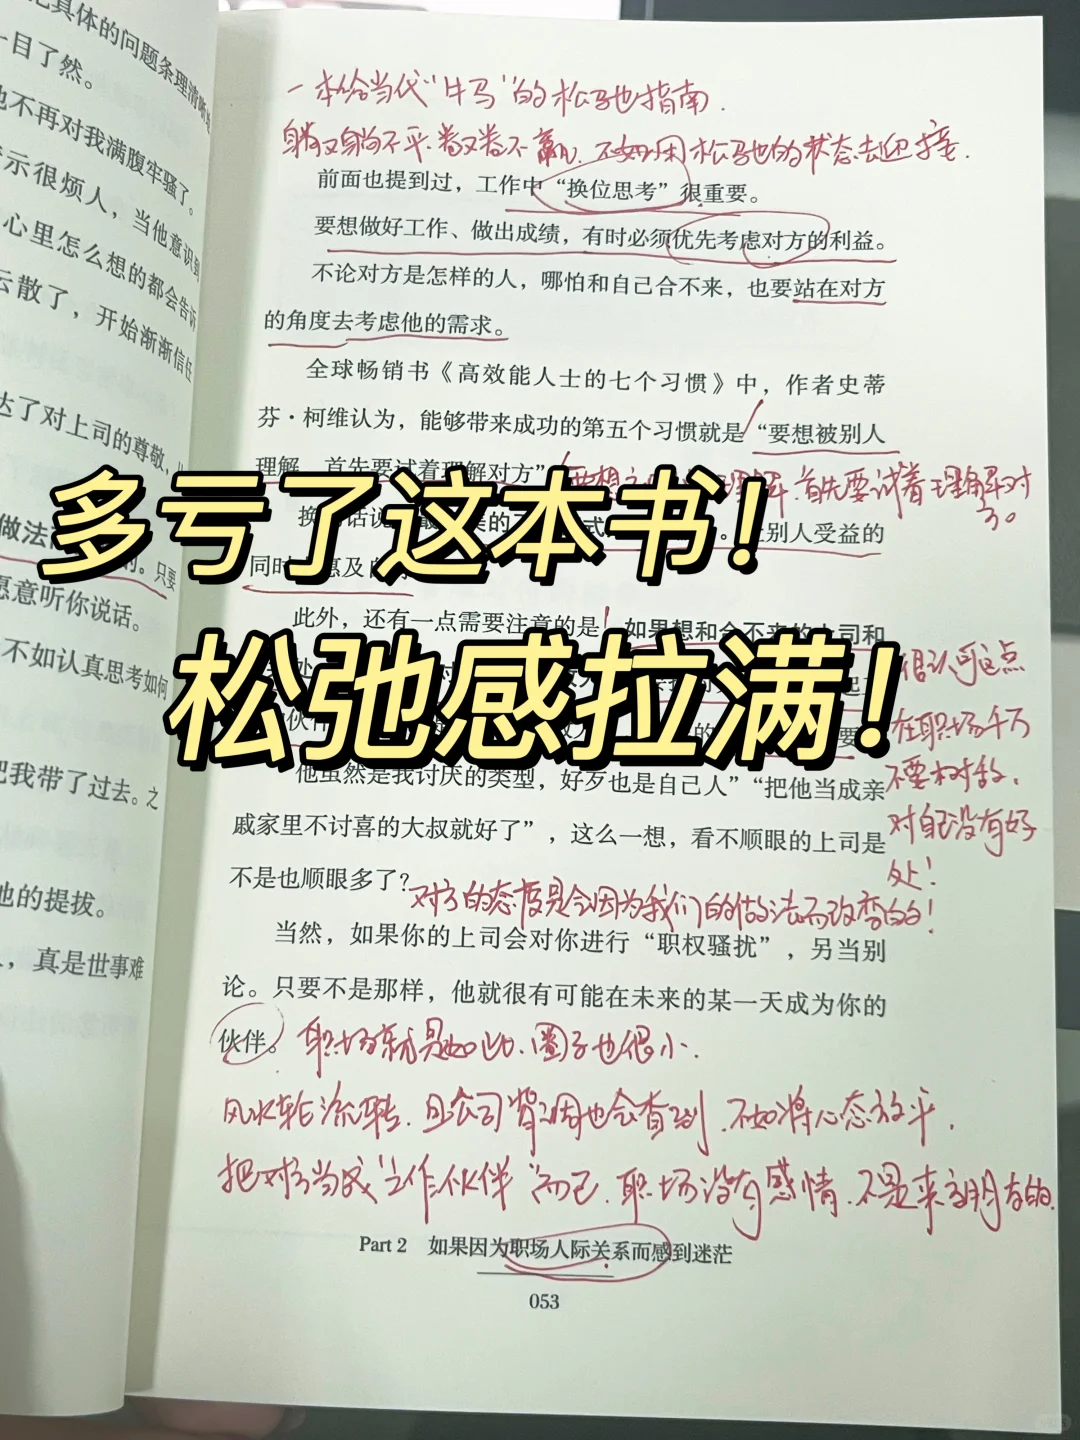 把具体的问题条理清晰地
一目了然。
他不再对我满腹牢骚了。
示很烦人，当他意识到
心里怎么想的都会告诉
云散了，开始渐渐信任
达了对上司的尊敬，
做法
的。只要
愿意听你说话。
不如认真思考如何
把我带了过去。之
他的提拔。
，真是世事难
一本给当代“牛马”的松弛指南.
躺又躺不平.卷又卷不赢.不如用松弛的状态去迎接.
前面也提到过，工作中“换位思考”很重要。
要想做好工作、做出成绩，有时必须优先考虑对方的利益。
不论对方是怎样的人，哪怕和自己合不来，也要站在对方
的角度去考虑他的需求。
全球畅销书《高效能人士的七个习惯》中，作者史蒂
芬·柯维认为，能够带来成功的第五个习惯就是“要想被别人
理解，首先要试着理解对方”
理解.首先要试着理解对
方。
多亏了这本书！
换
话说
别人受益的
同时
惠及
此外，还有一点需要注意的是
如果想和合不来的上司和
松弛感拉满！
伙伴
要
很认可这点
在职场千万
不要树敌.
对自己没有好
处！
他虽然是我讨厌的类型，好歹也是自己人”“把他当成亲
戚家里不讨喜的大叔就好了”，这么一想，看不顺眼的上司是
不是也顺眼多了？
对方的态度是会因为我们的做法而改变的！
当然，如果你的上司会对你进行“职权骚扰”，另当别
论。只要不是那样，他就很有可能在未来的某一天成为你的
伙伴。
职场就是如此.圈子也很小.
风水轮流转.且公司背调也会查到.不如将心态放平.
把对方当成“工作伙伴”而已.职场没有感情.不是来交朋友的.
Part 2 如果因为职场人际关系而感到迷茫
053